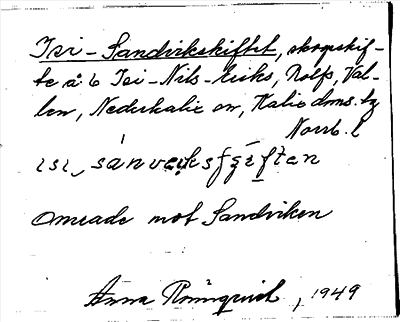 Isi-Sandvikskiftet, skogsskif-
te å 6 Isi-Nils-Eriks, Rolfs, Val-
len, Nederkalix sn, Kalix doms. tg
Norrb. l
ısı, sànveı̨ksfʒɛ́ften
område mot Sandviken
Anna Rönnqvist, 1949